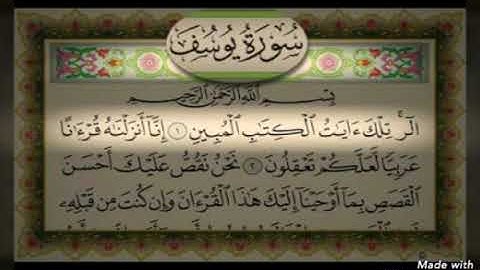 سُورَةُ يُوسُف
بِسْمِ ٱللَّهِ ٱلرَّحْمَٰنِ ٱلرَّحِيمِ
الٓر ۚ تِلْكَ ءَايَٰتُ ٱلْكِتَٰبِ ٱلْمُبِينِ ١ إِنَّآ أَنزَلْنَٰهُ قُرْءَٰنًا
عَرَبِيًّا لَّعَلَّكُمْ تَعْقِلُونَ ٢ نَحْنُ نَقُصُّ عَلَيْكَ أَحْسَنَ
ٱلْقَصَصِ بِمَآ أَوْحَيْنَآ إِلَيْكَ هَٰذَا ٱلْقُرْءَانَ وَإِن كُنتَ مِن قَبْلِهِۦ
Made with